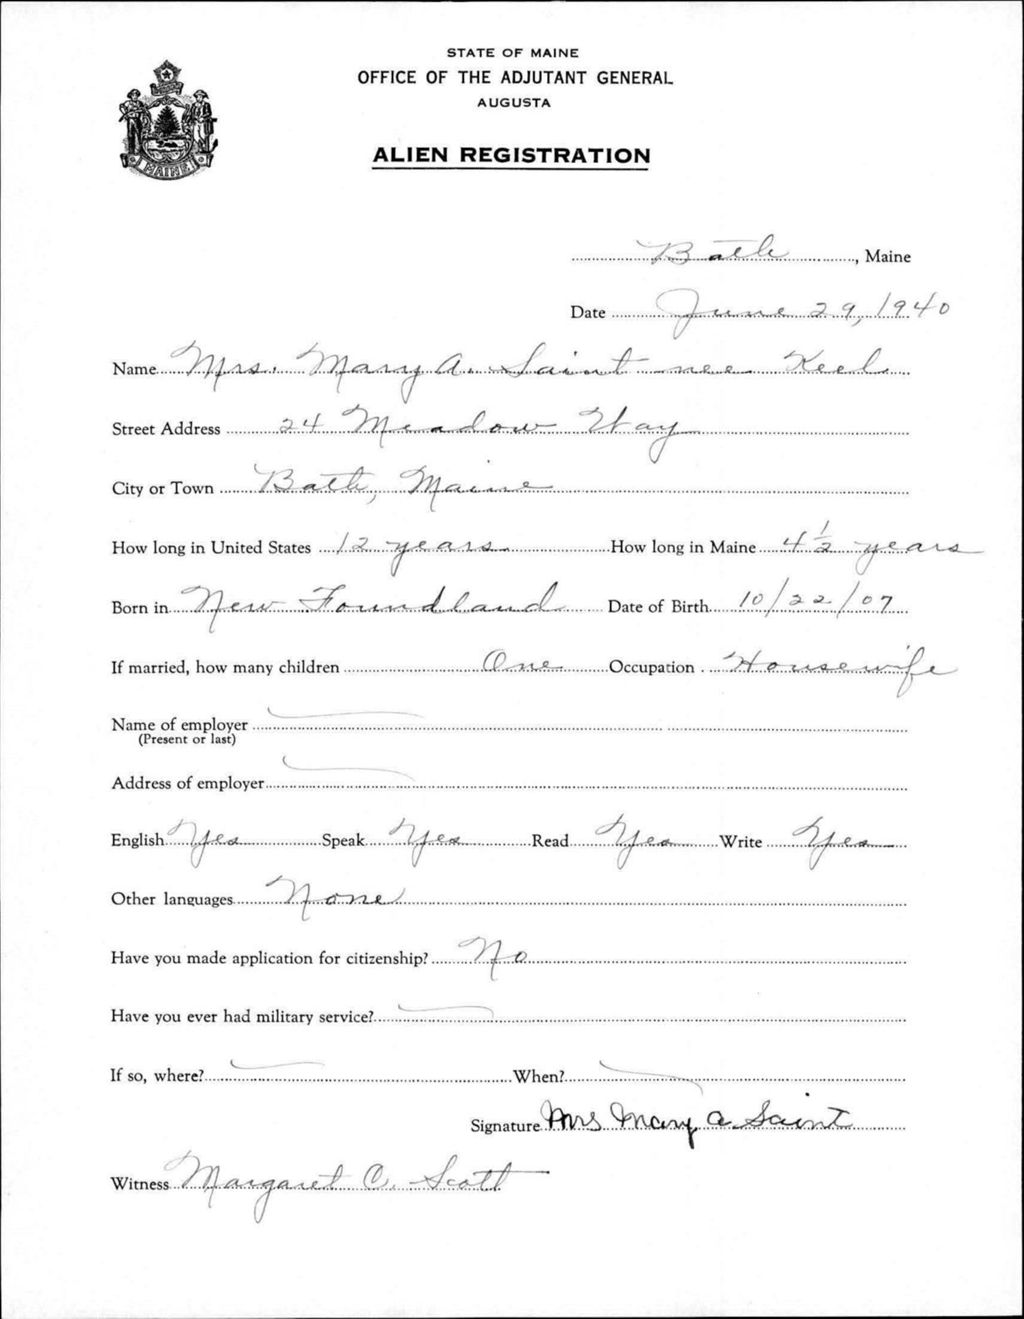 STATE OF MAINE
OFFICE OF THE ADJUTANT GENERAL
AUGUSTA
ALIEN REGISTRATION
MAINE
Bath, Maine
Date June 29, 1940
Name Mrs. Mary A. Saint nee Keel
Street Address 24 Meadow Way
City or Town Bath, Maine
How long in United States 12 years How long in Maine 4 1/2 years
Born in New Foundland Date of Birth 10/22/07
If married, how many children One Occupation Housewife
Name of employer
(Present or last)
Address of employer
English Yes Speak Yes Read Yes Write Yes
Other languages None
Have you made application for citizenship? No
Have you ever had military service?
If so, where? When?
Signature Mrs Mary A Saint
Witness Margaret C. Scott